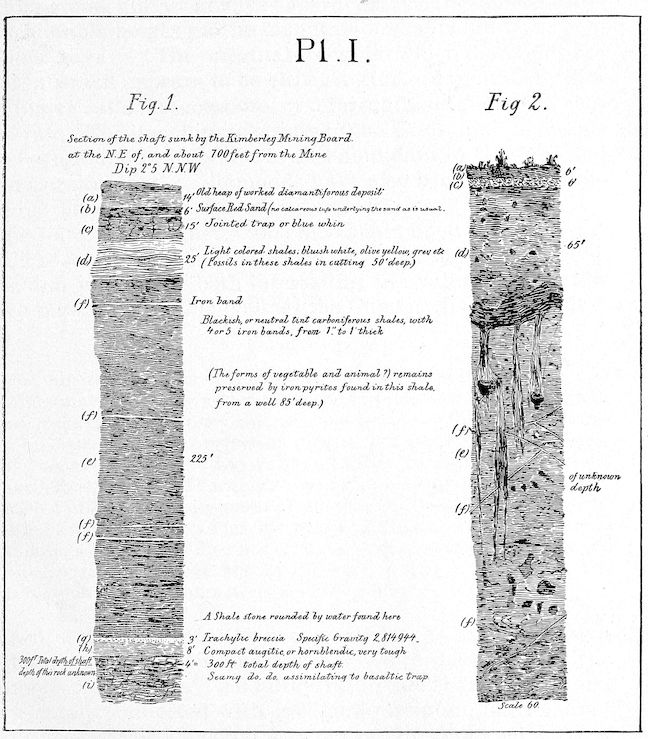 Pl. I.
Fig. 1.
Section of the shaft sunk by the Kimberley Mining Board.
at the N.E of, and about 700 feet from the Mine
Dip 2°5 N.NW
(a) 14' Old heap of worked diamantiferous deposit
(b) 6' Surface Red Sand (no calcareous tufa underlying the sand as is usual.
(c) 15' Jointed trap or blue whin
(d) 25' Light colored shales; bluish white, olive yellow, grey etc
(Fossils in these shales in cutting 30' deep.)
(f) Iron band
Blackish, or neutral tint carboniferous shales, with
4 or 5 iron bands, from 1" to 1' thick
(The forms of vegetable and animal?) remains
preserved by iron pyrites found in this shale,
from a well 85' deep.)
(f)
(e) 225'
(f)
(f)
A Shale stone rounded by water found here
(g) 3' Trachylic breccia Specific Gravity 2,814944.
(h) 8' Compact augitic, or hornblendic, very tough
300 fT Total depth of shaft. 4'= 300 ft total depth of shaft.
depth of this rock unknown
(i) Seumg do. do. assimilating to basaltic trap
Fig 2.
(a) 6'
(b)
(c) 6'
(d) 65'
(f)
(e)
of unknown
depth
(f)
(f)
Scale 60.